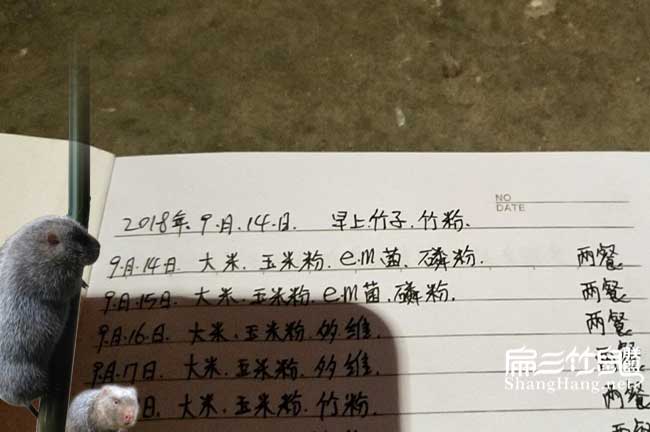 NO
DATE
2018年.9.月.14.日. 早上.竹子.竹粉.
9.月.14日. 大米.玉米粉.em菌.磷粉. 两餐
9.月.15日. 大米.玉米粉.em菌.磷粉. 两餐
9.月.16.日. 大米.玉米粉.多维. 两餐
9.月.17日. 大米.玉米粉.多维. 两餐
日. 大米.玉米粉.竹粉. 两餐
两
扁三竹鼠
ShangHang.net